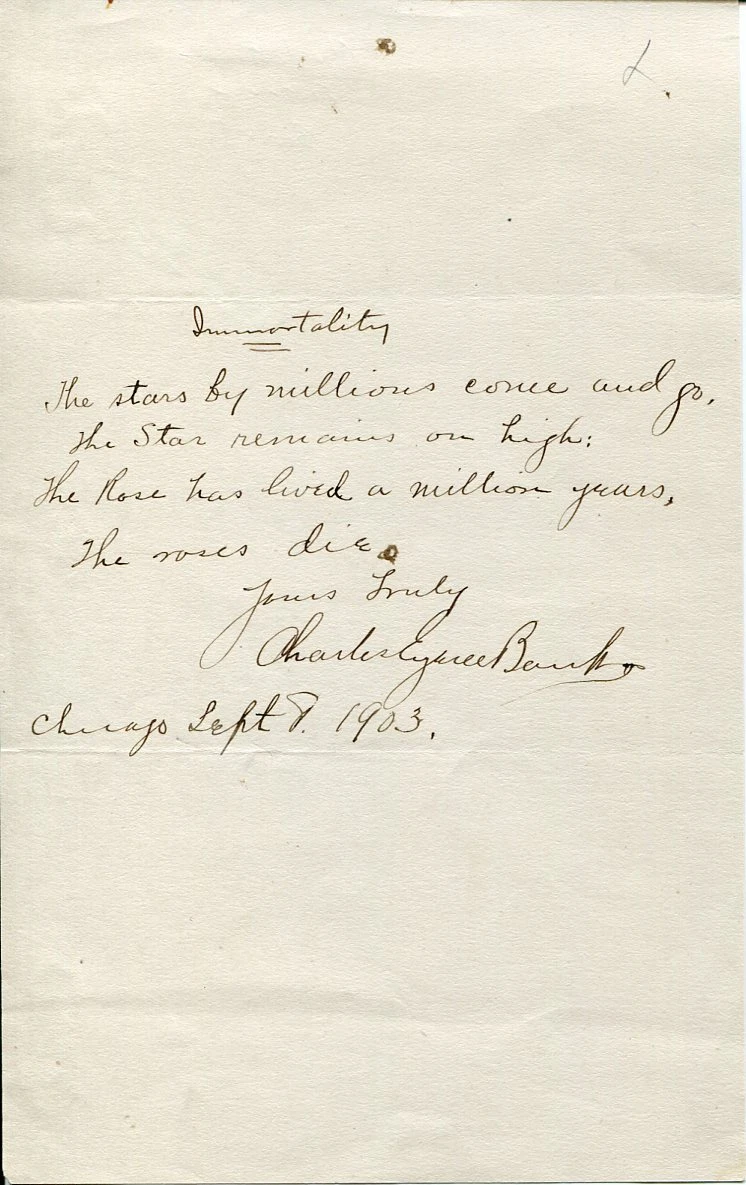 Immortality
The stars by millions come and go,
The Star remains on high:
The Rose has lived a million years,
The roses die.
Yours Truly
Charles Eugene Banks
Chicago Sept 8. 1903.